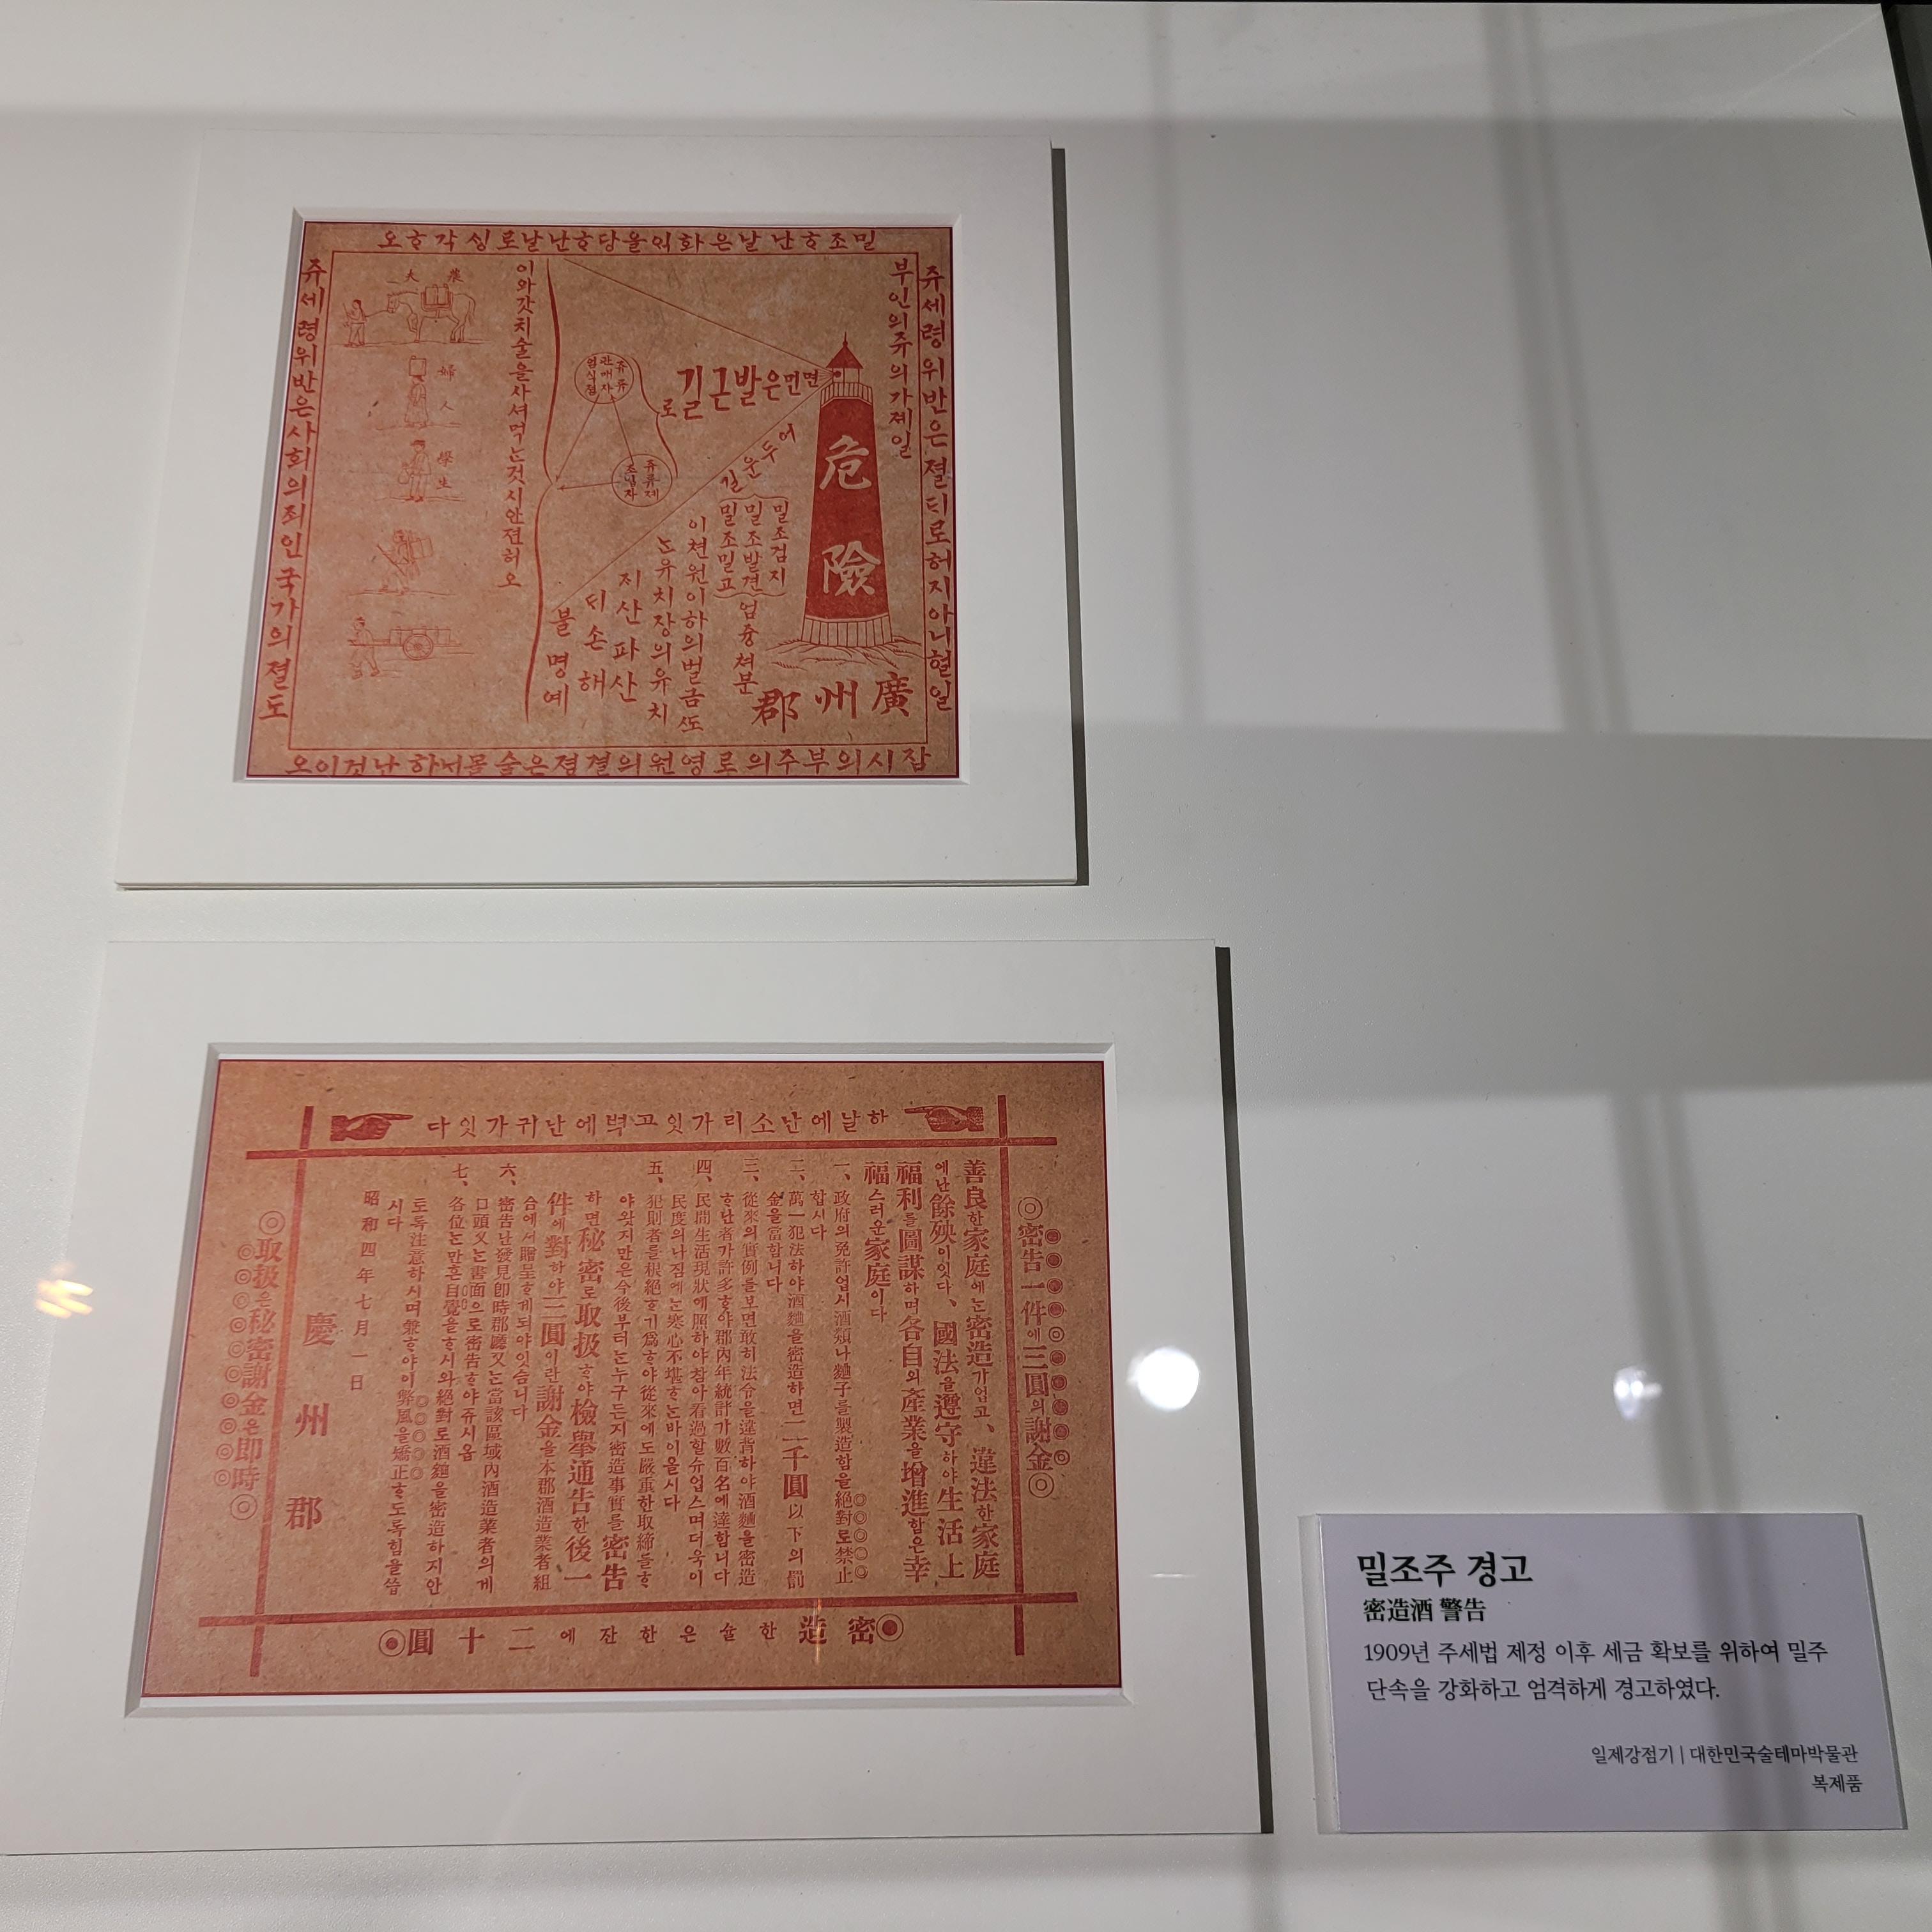 밀조하난날은화의을당하난날로싱각하오
쥬세령위반은졀티로허지아니헐일
부인의쥬의가졔일
危險
먼면은발근길로
어두운길
밀조검지
밀조발견
밀조밀고
엄즁쳐분
이쳔원이하의벌금또
는유치장의유치
지산파산
티손해
불명예
廣州郡
쥬류
판매자
음식졈
쥬류졔
조업자
이와갓치술을사셔먹는것시안젼허오
農夫
婦人
學生
쥬세령위반은사회의죄인국가의졀도
잡시의부주의로영원의결졈은술몰서하난것이오
하날에난소리가잇고벽에난귀가잇다
◎密告一件에三圓의謝金◎
善良한家庭에는密造가업고、違法한家庭
에난餘殃이잇다、國法을遵守하야生活上
福利를圖謀하며各自의産業을增進함은幸
福스러운家庭이다
一、政府의免許업시酒類나麯子를製造함을絕對로禁止
합시다
二、萬一犯法하야酒麯을密造하면二千圓以下의罰
金을當합니다
三、從來의實例를보면敢히法令을違背하야酒麯을密造
하난者가許多하야郡內年統計가數百名에達합니다
四、民間生活現狀에照하야참아看過할슈업스며더욱이
民度의나짐에는寒心不堪하는바이올시다
五、犯則者를根絕하기爲하야從來에도嚴重한取締를하
야왓지만은今後부터는누구든지密造事實를密告
하면秘密로取扱하야檢擧通告한後一
件에對하야三圓이란謝金을本郡酒造業者組
合에서贈呈하게되야잇슴니다
六、密告난發見卽時郡廳又는當該區域內酒造業者의게
口頭又는書面으로密告하야쥬시옵
七、各位는만흔自覺을하시와絕對로酒麯을密造하지안
토록注意하시며兼하야이弊風을矯正하도록힘을씁
시다
昭和四年七月一日
慶州郡
◎取扱은秘密謝金은卽時◎
◉密造한술은한잔에二十圓◉
밀조주 경고
密造酒 警告
1909년 주세법 제정 이후 세금 확보를 위하여 밀주
단속을 강화하고 엄격하게 경고하였다.
일제강점기 | 대한민국술테마박물관
복제품